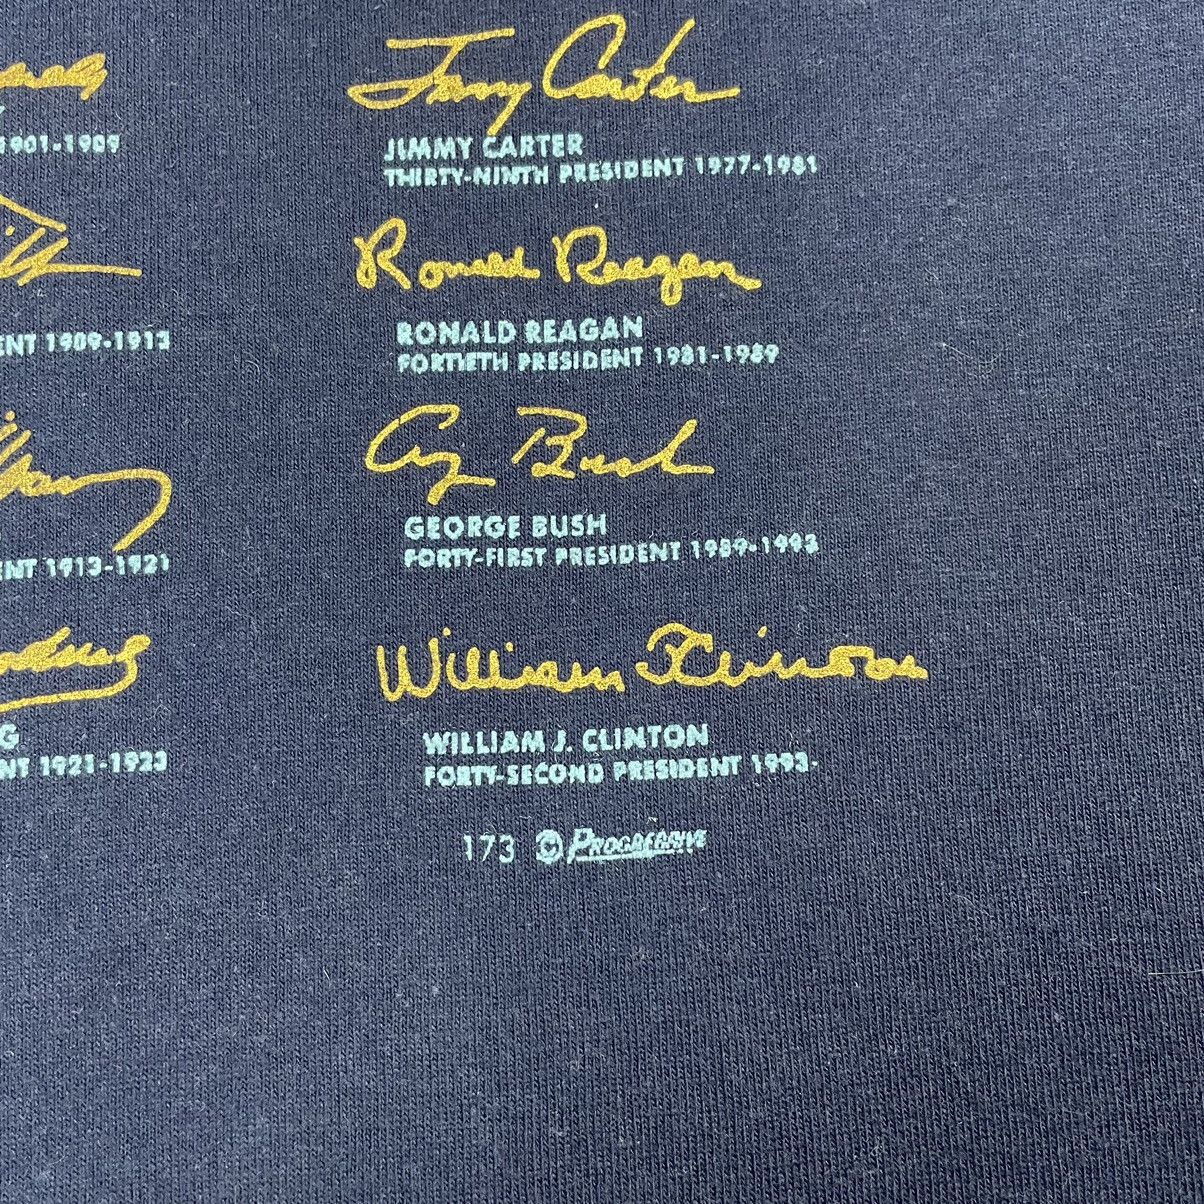 1901-1909
ENT 1909-1913
ENT 1913-1921
G
NT 1921-1923
Jimmy Carter
JIMMY CARTER
THIRTY-NINTH PRESIDENT 1977-1981
Ronald Reagan
RONALD REAGAN
FORTIETH PRESIDENT 1981-1989
G Bush
GEORGE BUSH
FORTY-FIRST PRESIDENT 1989-1993
William J Clinton
WILLIAM J. CLINTON
FORTY-SECOND PRESIDENT 1993-
173 © PROGRESSIVE